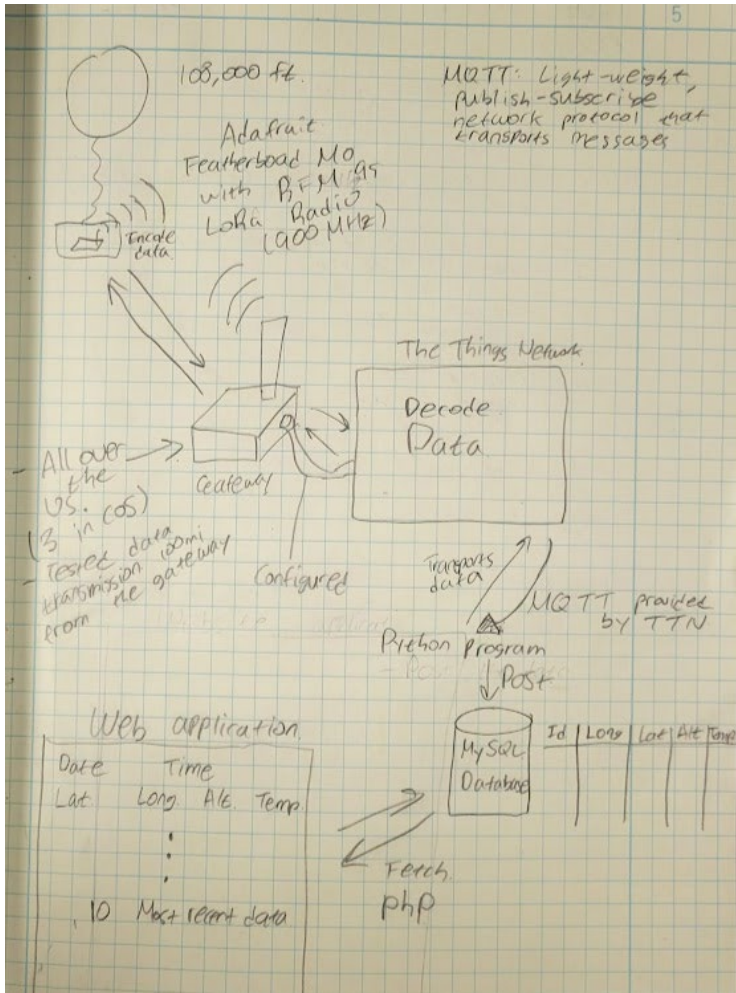 5
108,000 ft.
MQTT: Light-weight,
publish-subscribe
network protocol that
transports messages
Adafruit
Featherboad M0
with RFM 95
LoRa Radio
(900 MHz)
Encode
data
The Things Network
Decode
Data
Gateway
- All over
the
US.
(3 in COS)
- Tested data
transmission 100mi
from the gateway
Configured
Transports
data
MQTT provided
by TTN
Python Program
Post
MySQL
Database
Id Long Lat Alt Temp
Web application
Date Time
Lat Long. Alt. Temp.
10 Most recent data
Fetch
php